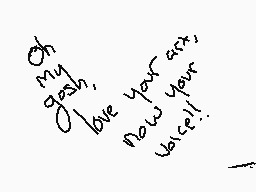 Oh
my
gosh,
love your art,
now your
voice!!